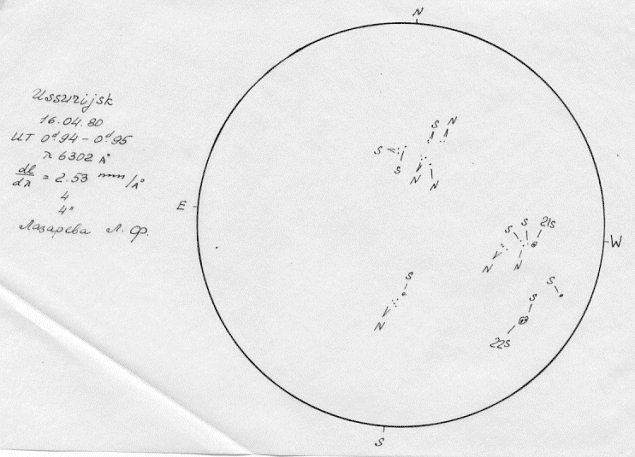 N
Ussurijsk
16.04.80
UT 0ᵈ.94 - 0ᵈ.95
λ 6302 Å
dl/dλ = 2.53 mm/Å
4
4"
Лазарева Л. Ф.
E
W
S
S N
S
S
N N
S S 21S
N N
S
N
S
S
22S